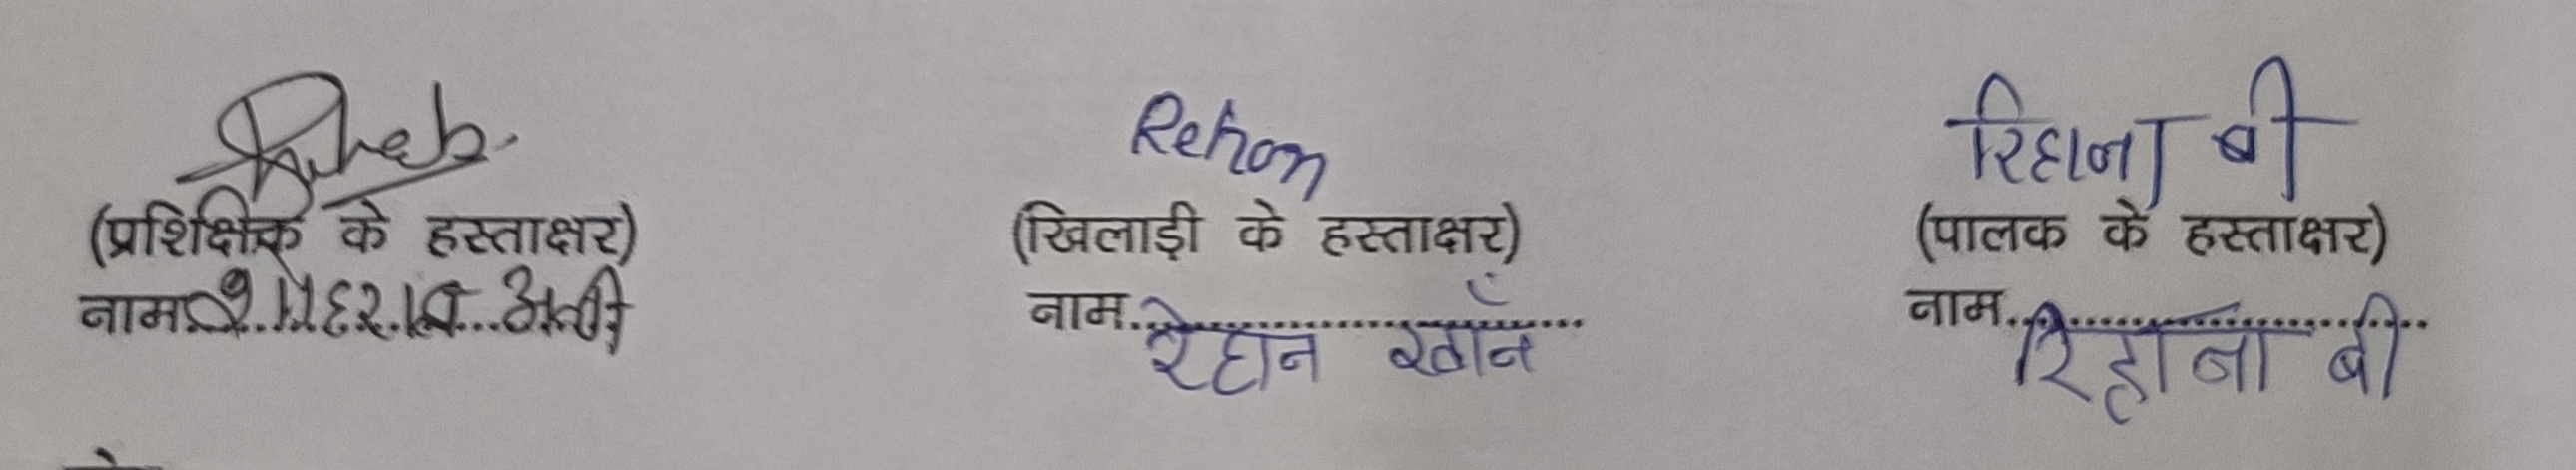 Rehan रिहाना बी
(प्रशिक्षिक के हस्ताक्षर) (खिलाड़ी के हस्ताक्षर) (पालक के हस्ताक्षर)
नाम.....अली नाम.......................... रेहान खाँन नाम.......................... रिहाना बी